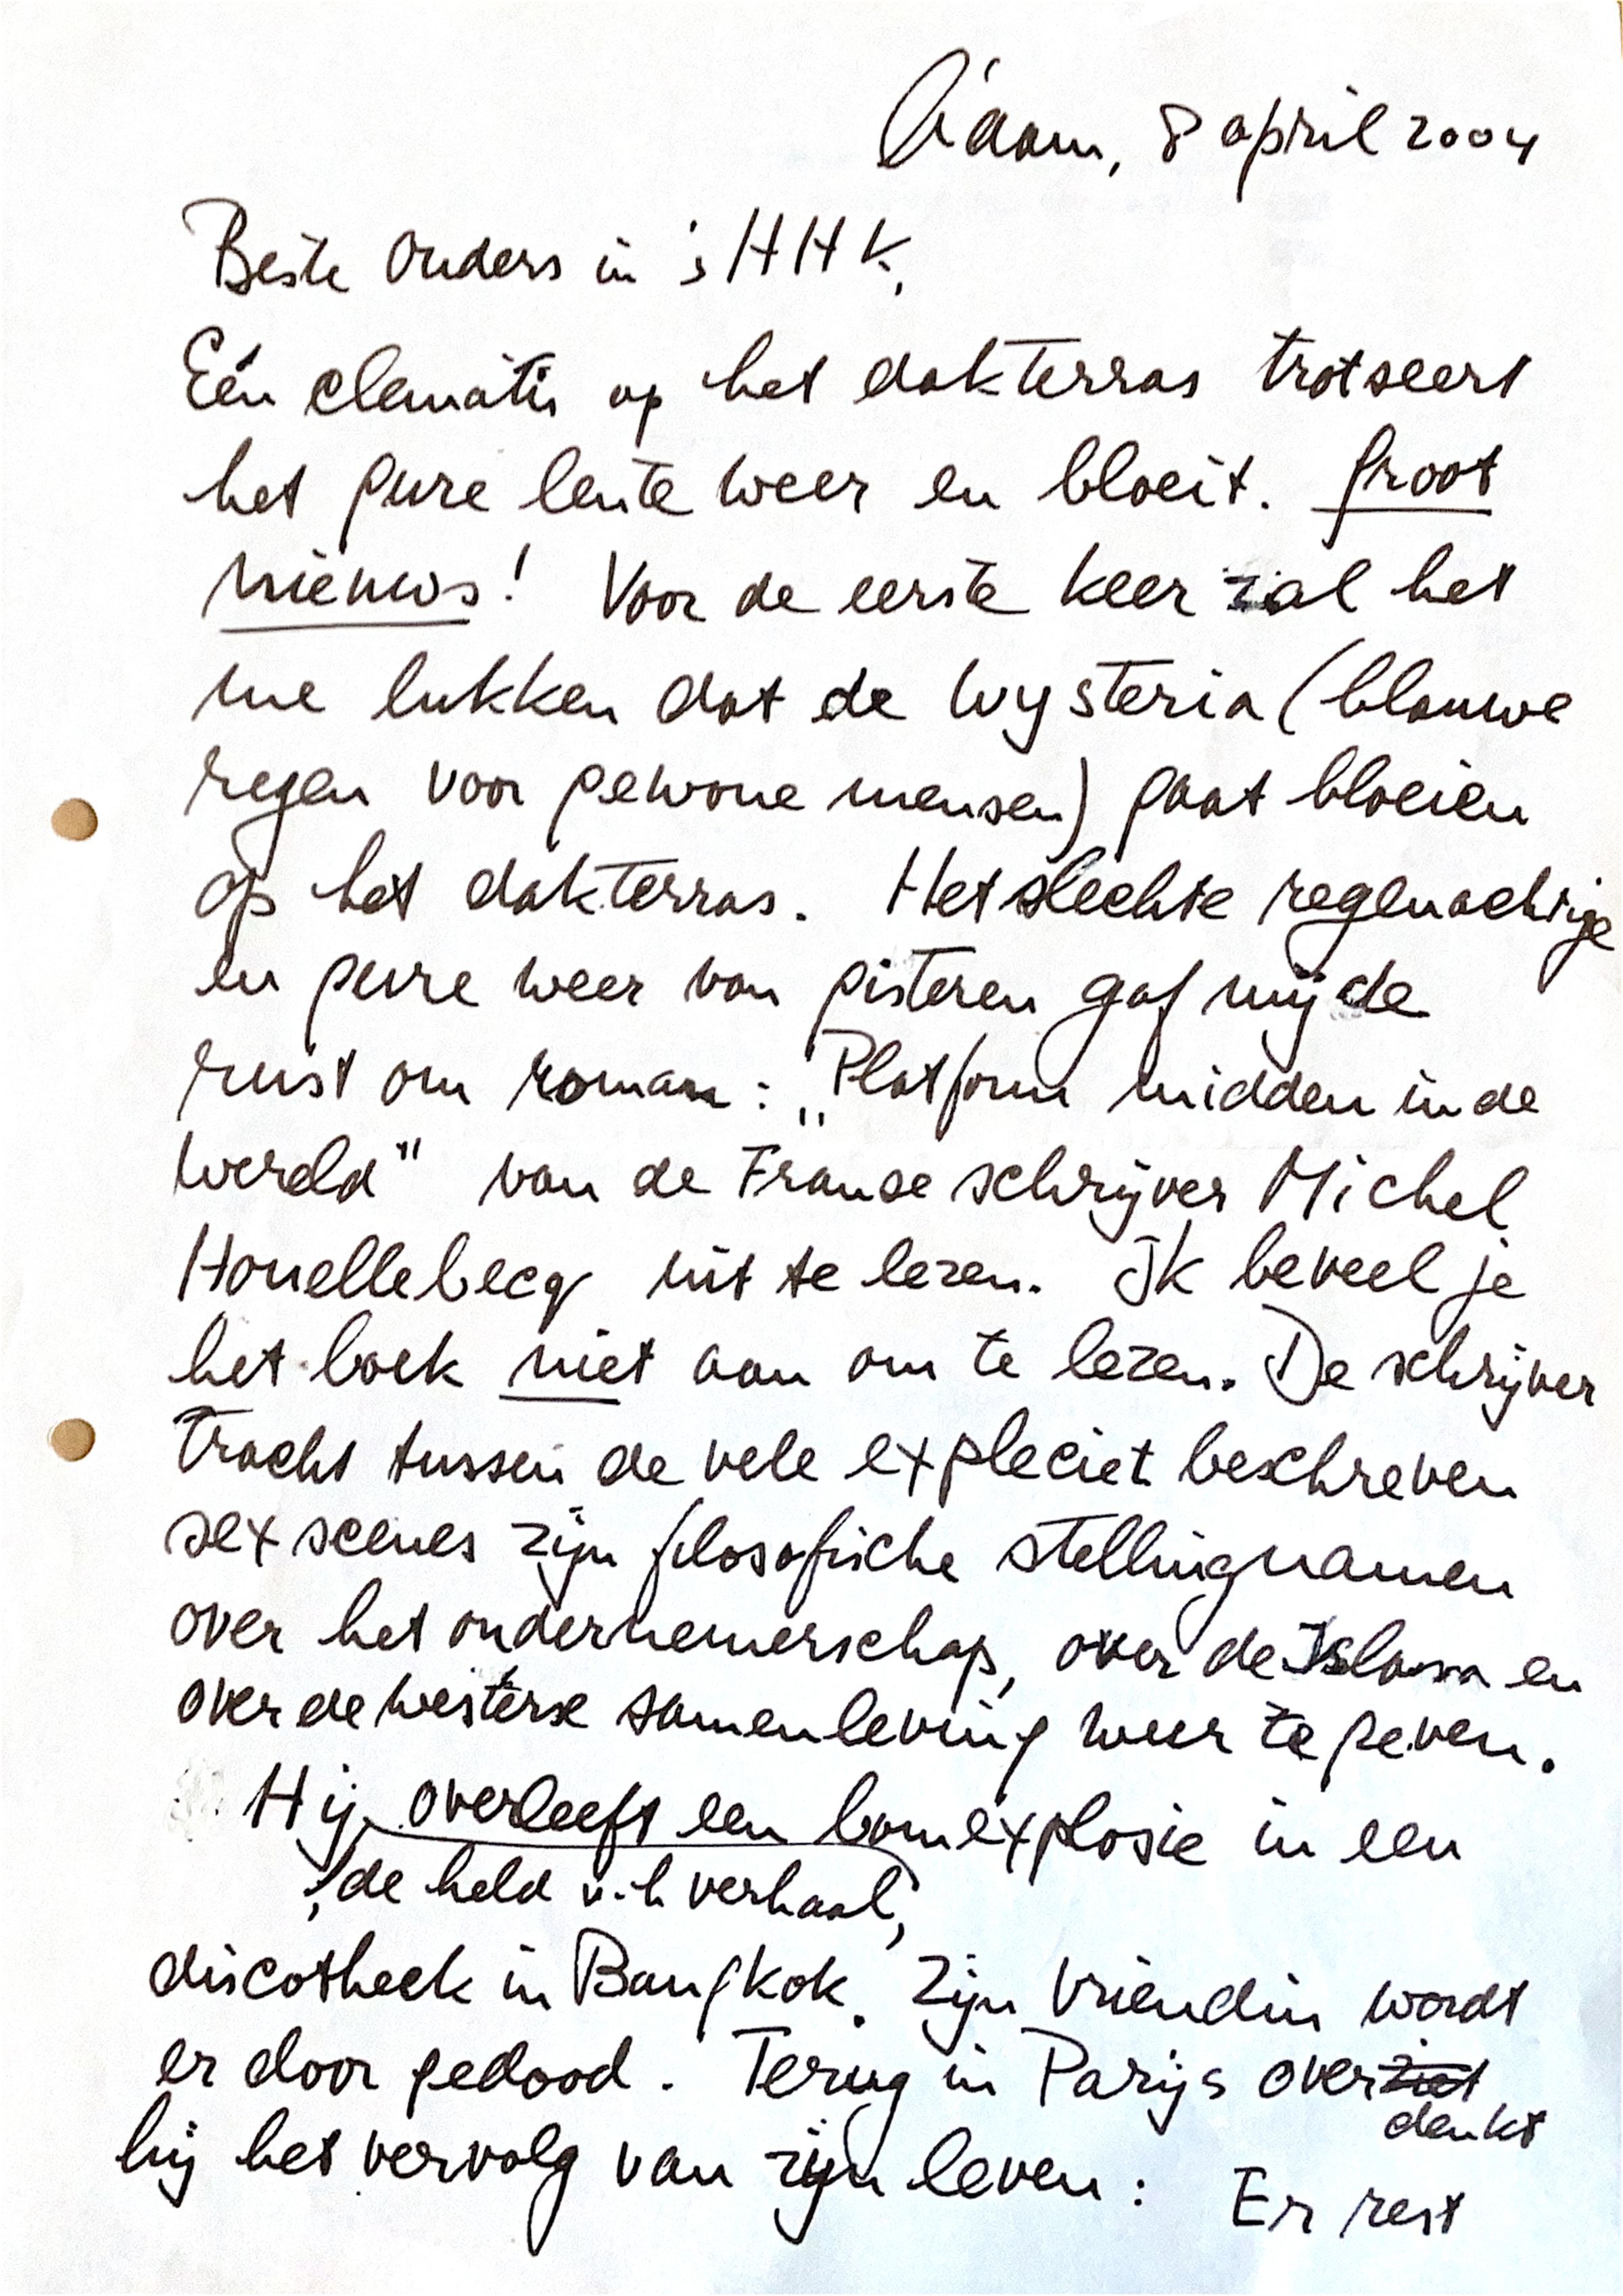 A'dam, 8 april 2004
Beste Ouders in 's HHK,
Eén clematis op het dakterras trotseert
het gure lente weer en bloeit. Groot
nieuws! Voor de eerste keer zal het
me lukken dat de Wysteria (blauwe
regen voor gewone mensen) gaat bloeien
op het dakterras. Het slechte regenachtige
en gure weer van gisteren gaf mij de
rust om roman: „Platform midden in de
wereld" van de Franse schrijver Michel
Houellebecq uit te lezen. Ik beveel je
het boek niet aan om te lezen. De schrijver
tracht tussen de vele expleciet beschreven
sex scenes zijn filosofische stellingnamen
over het ondernemerschap, over de Islam en
over de westerse samenleving weer te geven.
Hij overleeft een bomexplosie in een
, de held v.h verhaal,
discotheek in Bangkok. Zijn Vriendin wordt
er door gedood. Terug in Parijs overziet
denkt
hij het vervolg van zijn leven: Er rest